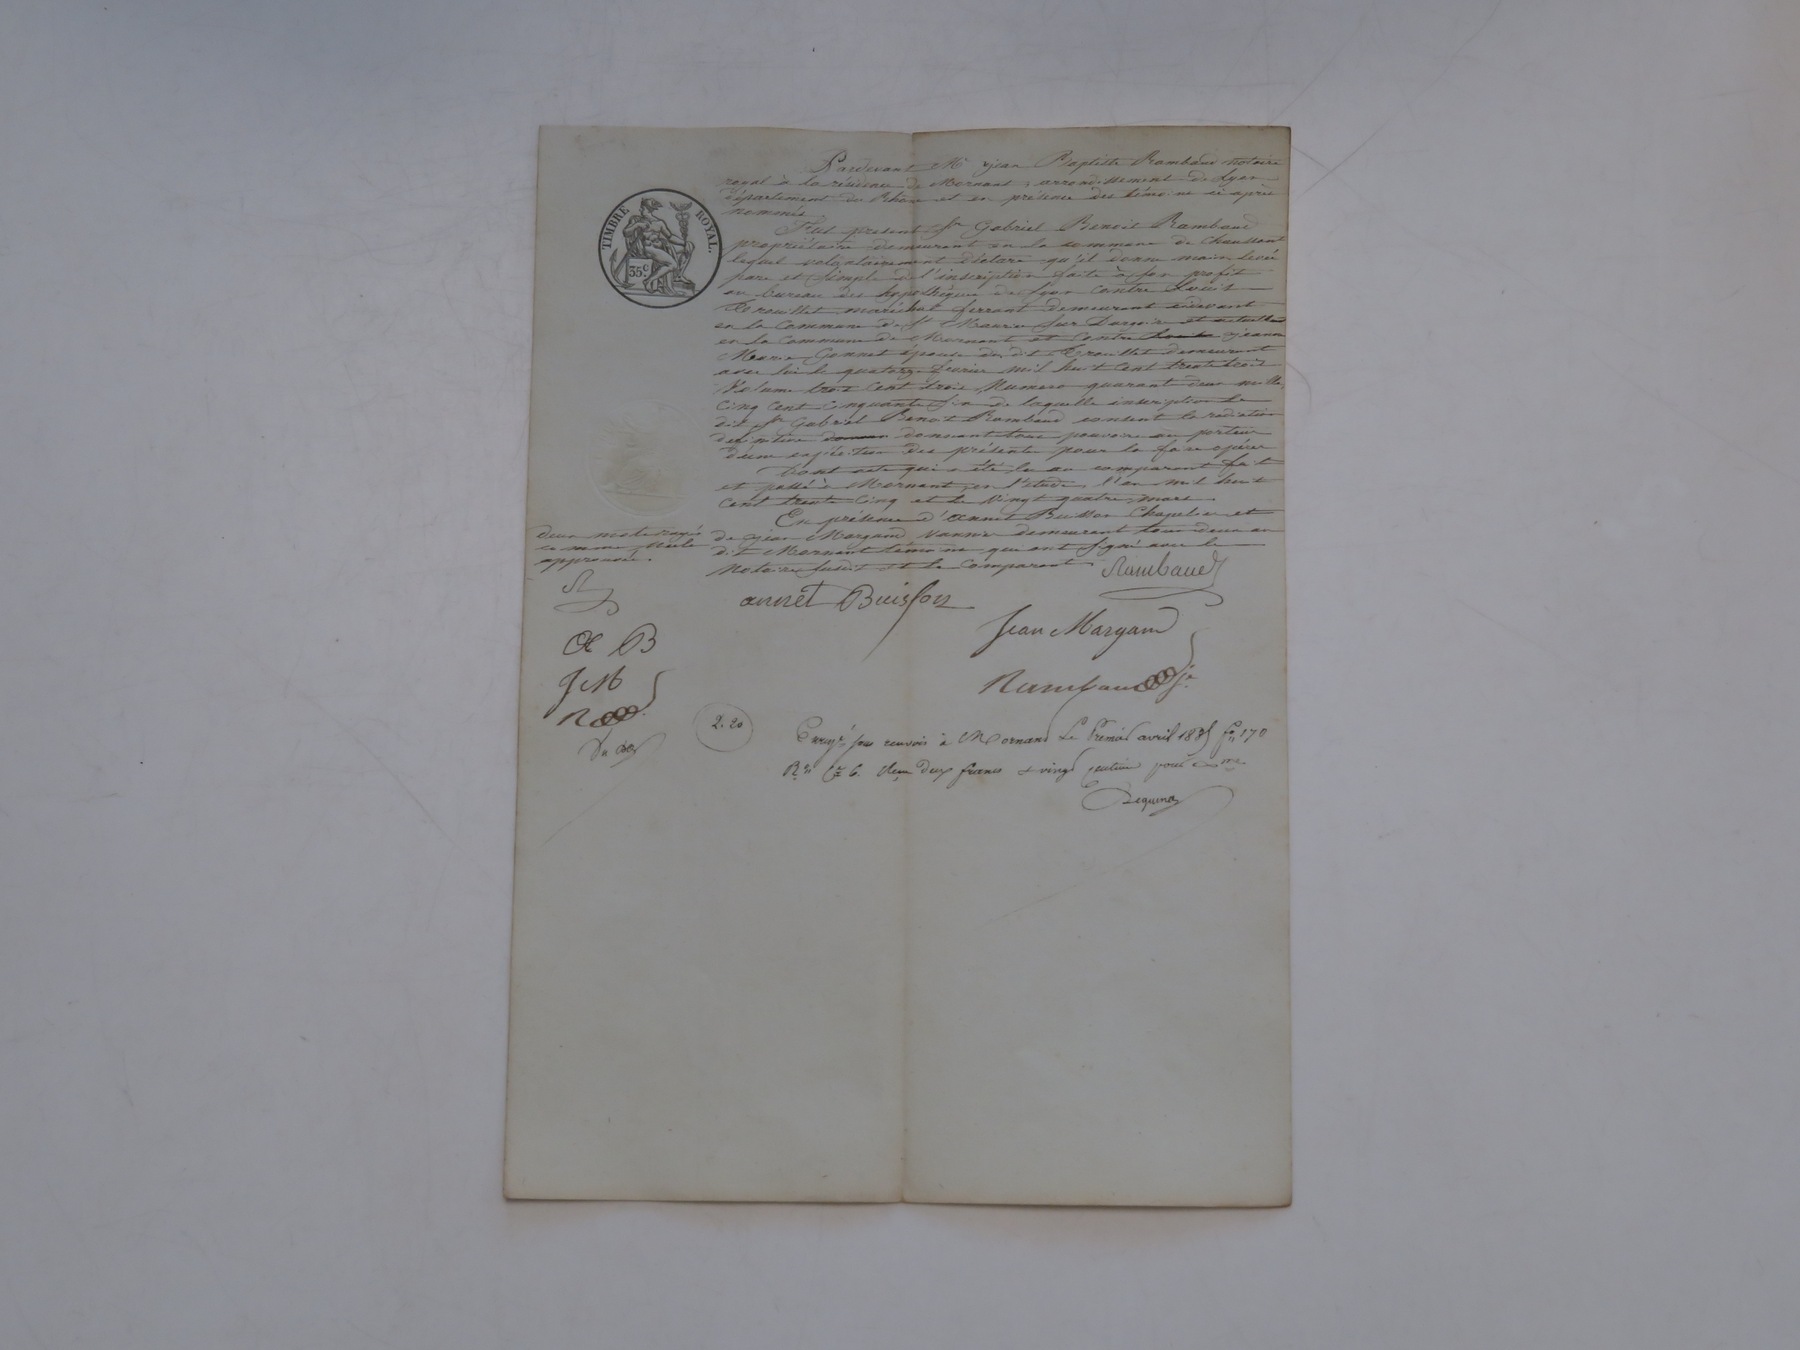 TIMBRE ROYAL.
35 c.
Pardevant Me jean Baptiste Rambaud notaire
royal à la résidence de Mornant, arrondissement de Lyon
département du Rhône et en présence des témoins ci après
nommés
Fut présent Sr Gabriel Benoit Rambaud
propriétaire demeurant en la commune de Chaussant
lequel volontairement déclare qu'il donne main levée
pure et simple de l'inscription faite à son profit
au bureau des hypothèques de Lyon contre Louis
Trouillet maréchal ferrant demeurant cidevant
en la Commune de St Maurice Sur Dargoire et
en la Commune de Mornant et contre jeanne
Marie Gonnet épouse du dit Trouillet demeurant
avec lui le quatorze fevrier mil huit cent trente trois
Volume trois cent trois, Numero quarant deux mille
cinq cent cinquante six de laquelle inscription le
dit Sr Gabriel Benoit Rambaud consent la radiation
definitive donnant tous pouvoirs au porteur
d'une expédition des présentes pour la faire opérer
Dont acte qui a été lu au comparant fait
et passé à Mornant en l'étude, l'an mil huit
cent trente cinq et le Vingt quatre mars.
En présence d'annet Buisson Chapelier et
de jean Margand Vannier demeurant tous deux au
dit Mornant témoins qui ont signé avec le
Notaire susdit et le Comparant
deux mots rayés
comme nuls
approuvée.
Rambaud
annet Buisson
Jean Margand
Rambaud je
R
a B
J M
R
2. 20
Enregé sous renvois à Mornand Le Premier avril 1835 fo 170
Ro Ce 6. Reçu deux francs & vingt centimes pour